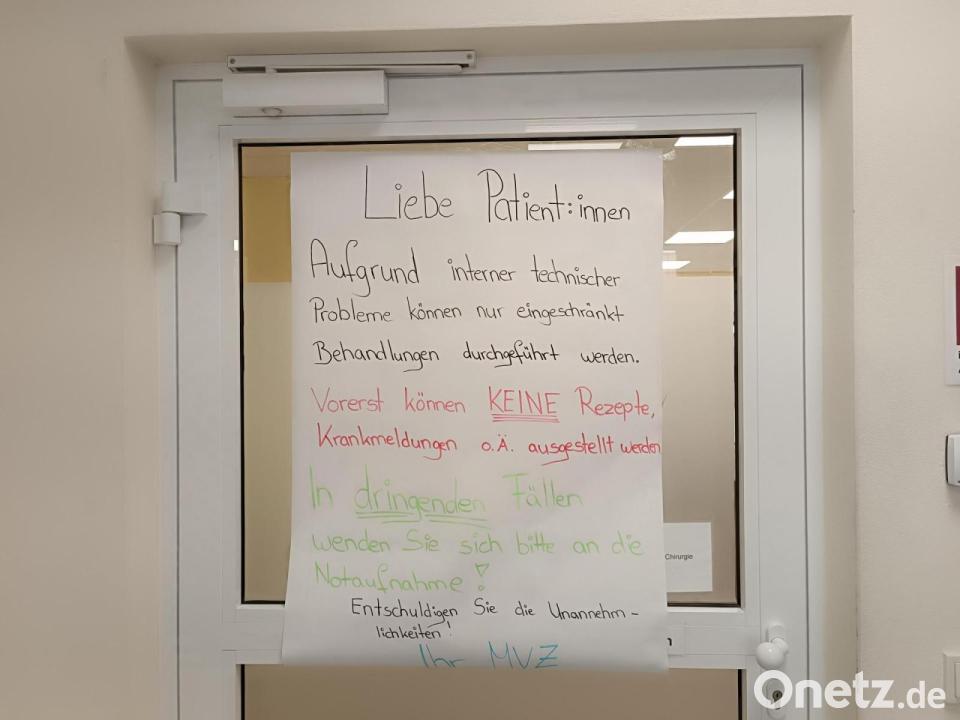 Liebe Patient:innen
Aufgrund interner technischer
Probleme können nur eingeschränkt
Behandlungen durchgeführt werden.
Vorerst können KEINE Rezepte,
Krankmeldungen o.Ä. ausgestellt werden
In dringenden Fällen
wenden Sie sich bitte an die
Notaufnahme!
Entschuldigen Sie die Unannehm-
lichkeiten!
Ihr MVZ
Chirurgie
Onetz.de